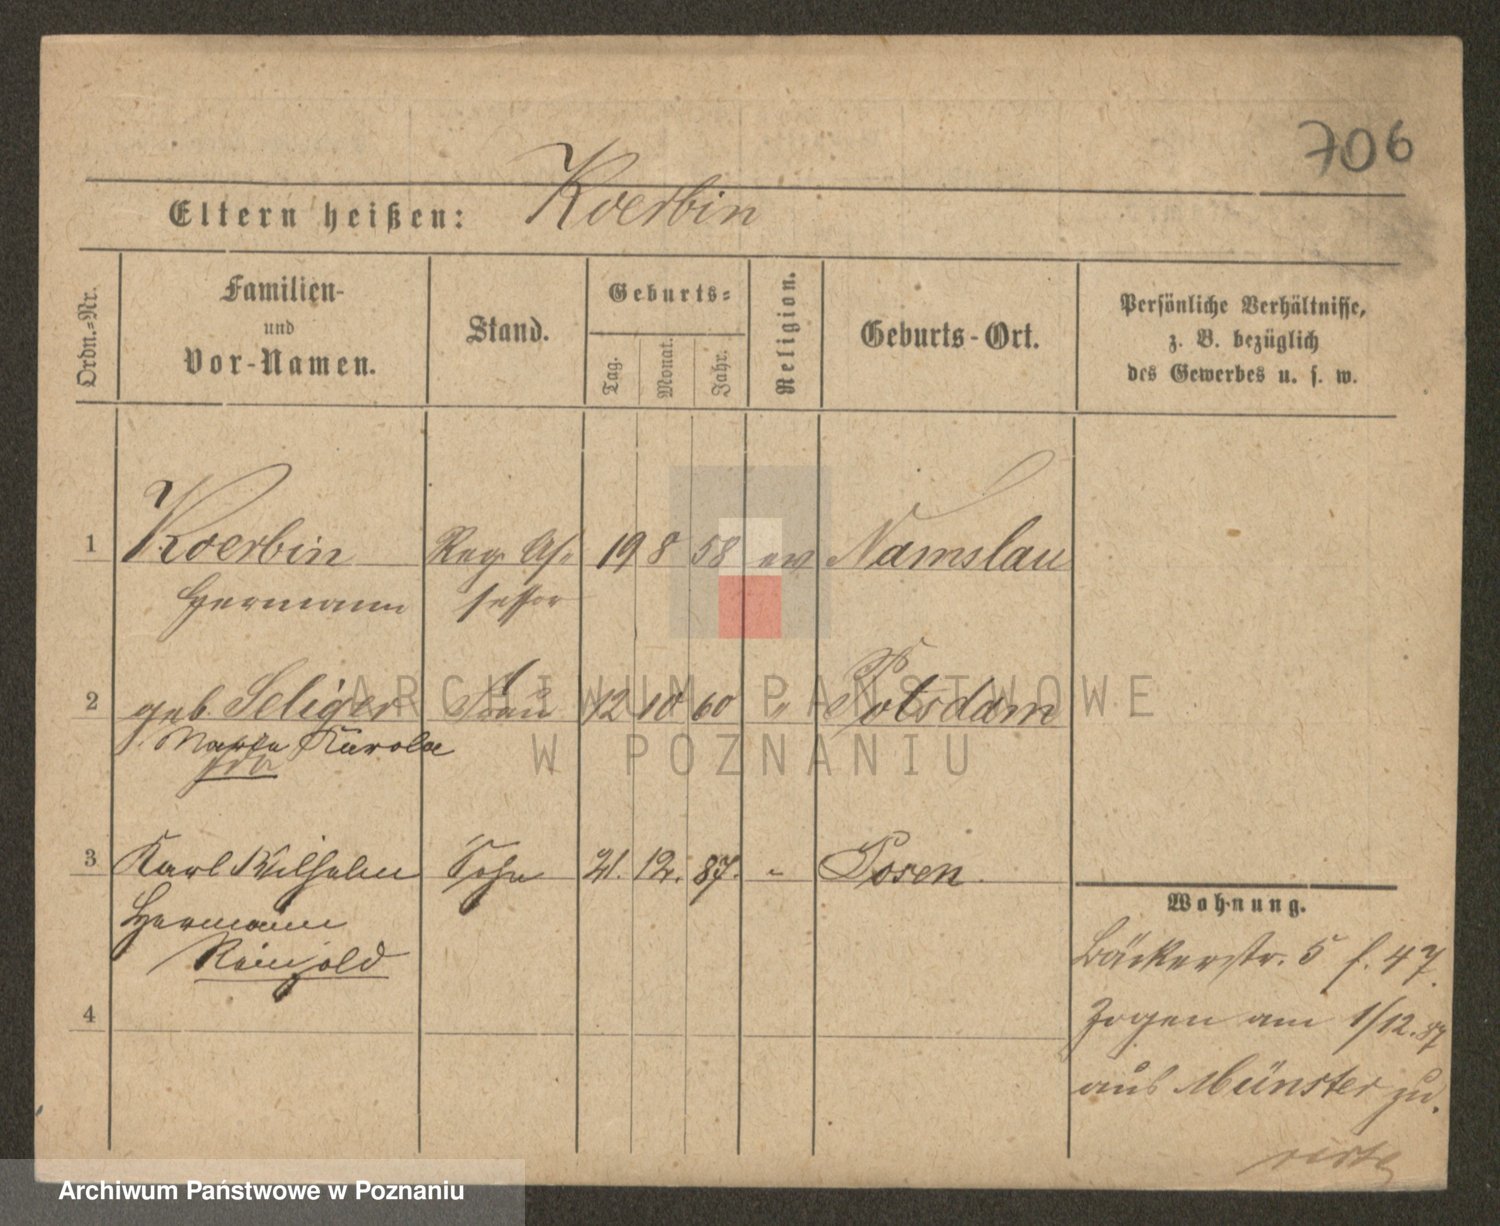 706
Eltern heißen: Koerbin
Ordn.=Nr.
Familien-
und
Vor-Namen.
Stand.
Geburts=
Tag.
Monat.
Jahr.
Religion.
Geburts-Ort.
Persönliche Verhältnisse,
z. B. bezüglich
des Gewerbes u. s. w.
1 Koerbin Reg. As= 19 8 58 ev Namslau
Hermann sessor
2 geb. Seliger Frau 12 10 60 " Potsdam
Marie Karola
3 Karl Wilhelm Sohn 21. 12. 87. " Posen.
Hermann
Reinhold
4
Wohnung.
Bäckerstr. 5 f. 47.
Zogen am 1/12.87
aus Münster zu.
ARCHIWUM PAŃSTWOWE
W POZNANIU
Archiwum Państwowe w Poznaniu